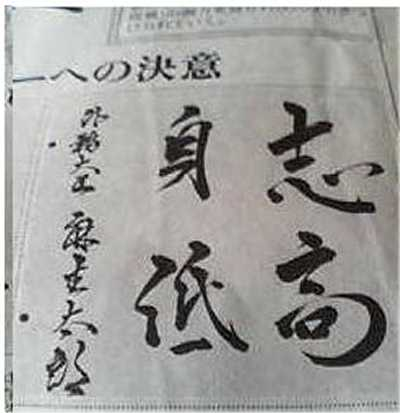 ーへの決意
志高
身低
外務大臣 麻生太郎